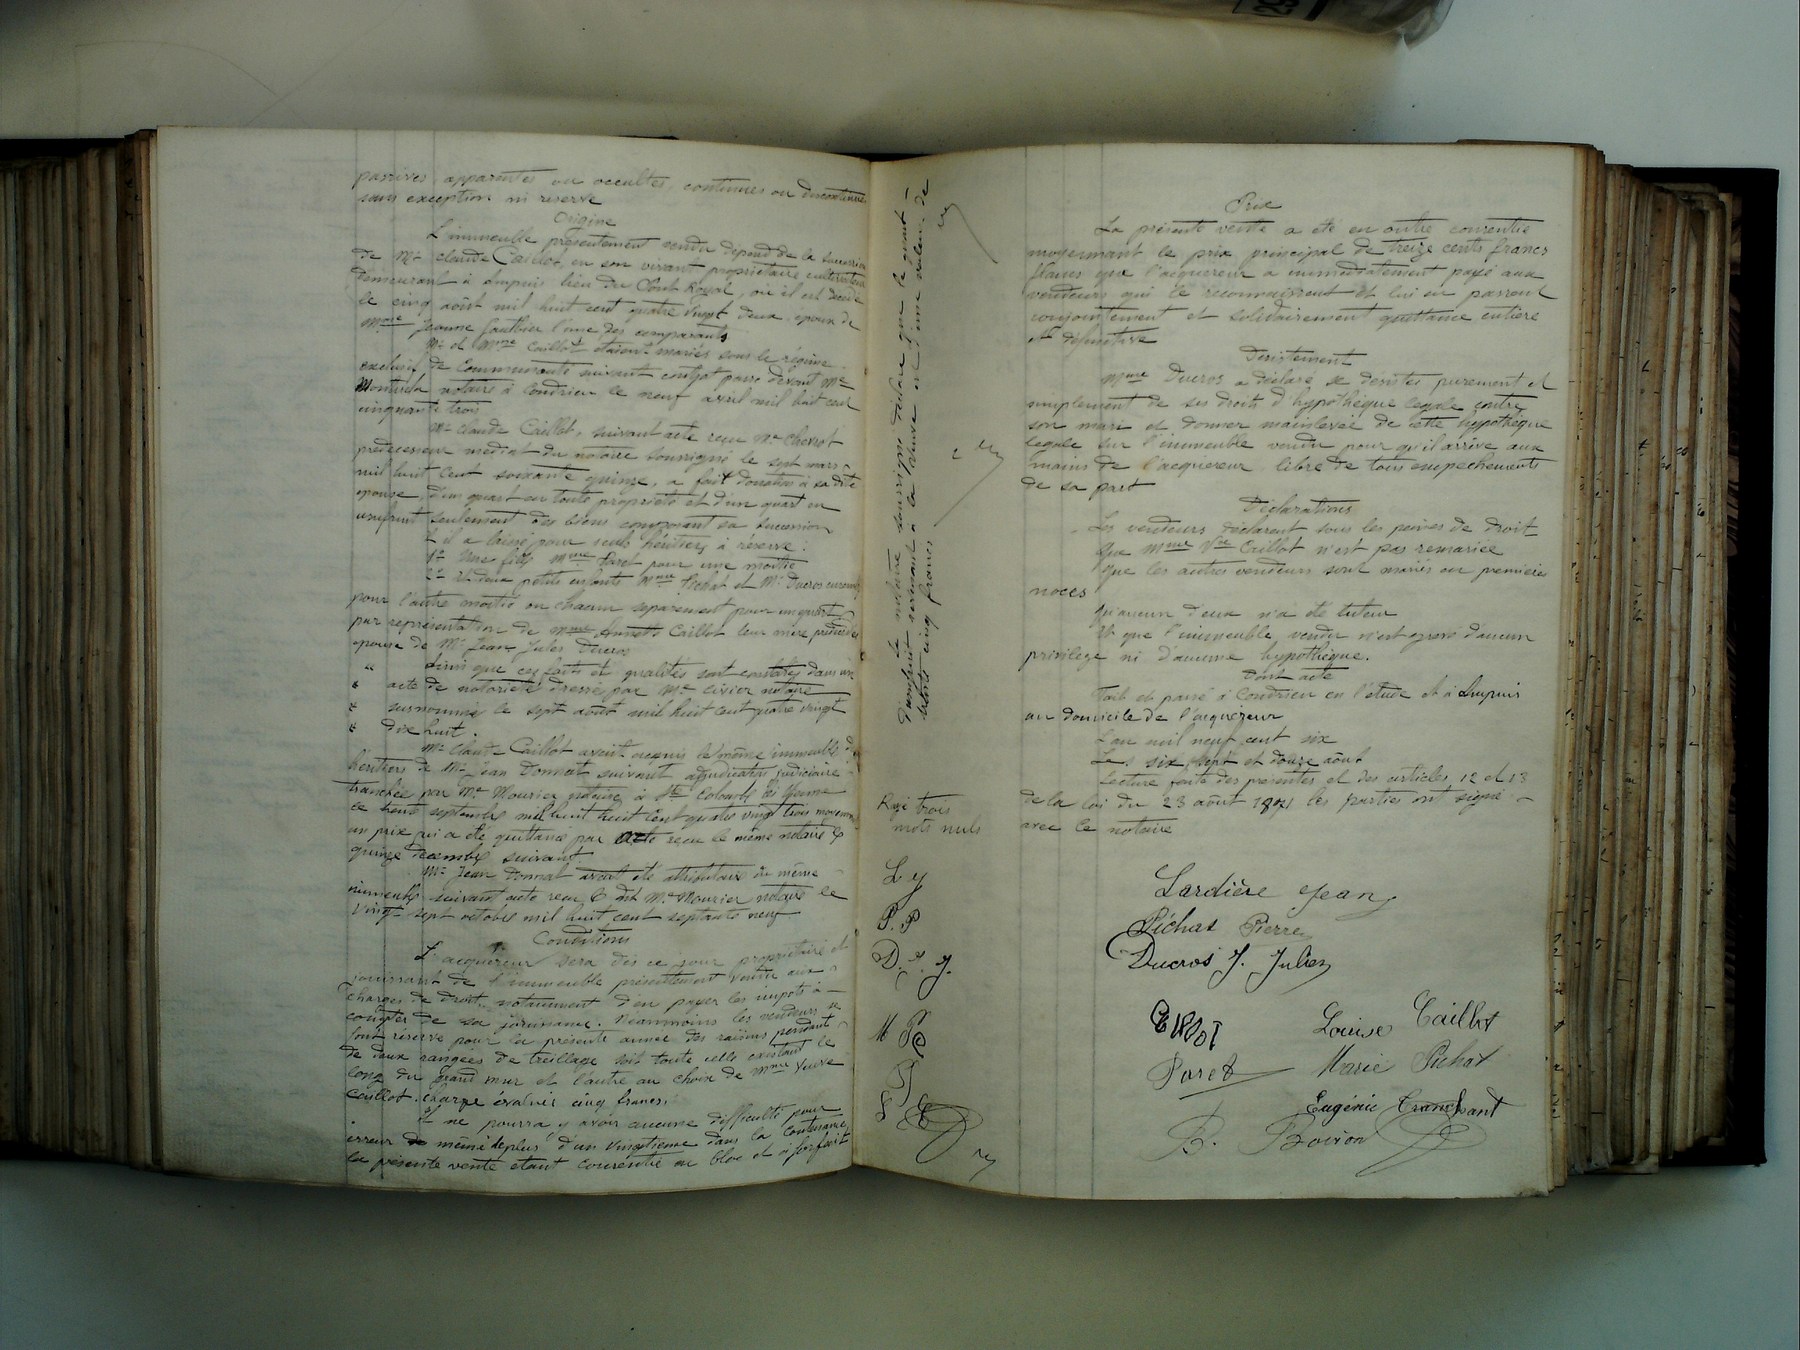 passives apparentes ou occultes, continues ou discontinues
sans exception ni réserve
Origine
L'immeuble présentement vendu dépend de la succession
de Mr Claude Caillot, en son vivant propriétaire cultivateur
demeurant à Ampuis lieu du Pont Royal, où il est décédé
le cinq août mil huit cent quatre vingt deux, époux de
Mme Jeanne Gauthier l'une des comparants
Mr et Mme Caillot étaient mariés sous le régime
exclusif de Communauté suivant contrat passé devant Me
notaire à Condrieu le neuf avril mil huit cent
cinquante trois
Mr Claude Caillot, suivant acte reçu Me Chevrot
prédécesseur médiat du notaire soussigné le sept mars
mil huit cent soixante quinze, a fait donation à sa dite
épouse, d'un quart en toute propriété et d'un quart en
usufruit seulement des biens composant sa succession
Et il a laissé pour seuls héritiers à réserve :
1° Une fille Mme Paret pour une moitié
2° Et deux petits enfants Mme Pichat et Mr Ducros
pour l'autre moitié ou chacun séparément pour un quart
par représentation de Mme Annette Caillot leur mère prédécédée
épouse de Mr Jean Jules Ducros
" Ainsi que ces faits et qualités sont constatés dans un
" acte de notoriété dressé par Me notaire
" susnommé le sept août mil huit cent quatre vingt
" dix huit.
Mr Claude Caillot avait acquis le même immeuble des
héritiers de Mr Jean Donnat suivant adjudication judiciaire
tranchée par Me Mourier notaire à Ste Colombe lès Vienne
le trente septembre mil huit huit cent quatre vingt trois moyennant
un prix qui a été quittancé par acte reçu le même notaire le
quinze décembre suivant
Mr Jean Donnat avait été attributaire du même
immeuble suivant acte reçu le dit Me Mourier notaire le
vingt sept octobre mil huit cent septante neuf
Conditions
L'acquéreur sera dès ce jour propriétaire et
jouissant de l'immeuble présentement vendu aux
charges de droit notamment d'en payer les impôts à
compter de sa jouissance. Néanmoins les vendeurs se
font réserve pour la présente année des raisins pendant
de deux rangées de treillage soit toute celle existant le
long du grand mur et l'autre au choix de Mme Veuve
Caillot. charge évaluée cinq francs.
Il ne pourra y avoir aucune difficulté pour
erreur de même de plus d'un vingtième dans la contenance,
la présente vente étant consentie au bloc et à forfait
Le notaire soussigné déclare que le quart
d'usufruit revenant à la veuve est d'une valeur de
trente cinq francs
Rayé trois
mots nuls
L J
P. P
D. J. J.
M P
Prix
La présente vente a été en outre consentie
moyennant le prix principal de treize cents francs
francs que l'acquéreur a immédiatement payé aux
vendeurs qui le reconnaissent et lui en passent
conjointement et solidairement quittance entière
et définitive
Désistement
Mme Ducros a déclaré se désister purement et
simplement de ses droits d'hypothèque légale contre
son mari et donner mainlevée de cette hypothèque
légale sur l'immeuble vendu pour qu'il arrive aux
mains de l'acquéreur libre de tous empêchements
de sa part
Déclarations
Les vendeurs déclarent sous les peines de droit
Que Mme Vve Caillot n'est pas remariée
Que les autres vendeurs sont mariés en premières
noces
Qu'aucun d'eux n'a été tuteur
Et que l'immeuble vendu n'est grevé d'aucun
privilège ni d'aucune hypothèque.
Dont acte
Fait et passé à Condrieu en l'étude et à Ampuis
au domicile de l'acquéreur
L'an mil neuf cent six
Les six, sept et douze août
Lecture faite des présentes et des articles 12 et 13
de la loi du 23 août 1871 les parties ont signé
avec le notaire
Lardière Jean
Pichat Pierre
Ducros J. Julien
Louise Caillot
Paret Marie Pichat
Eugénie Tranchant
B. Boiron